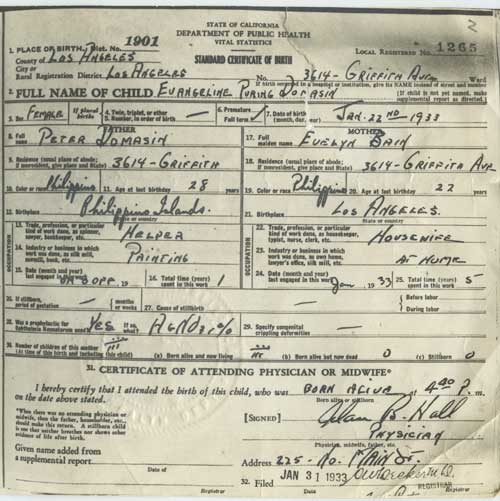 STATE OF CALIFORNIA
DEPARTMENT OF PUBLIC HEALTH
VITAL STATISTICS
STANDARD CERTIFICATE OF BIRTH
2
1. PLACE OF BIRTH, Dist. No. 1901
LOCAL REGISTERED No. 1265
County of Los Angeles
City or
Rural Registration District Los Angeles No. 3614-Griffith Ave Ward
If birth occurred in a hospital or institution, give its NAME instead of street and number
2. FULL NAME OF CHILD Evangeline Puring Domasin If child is not yet named, make supplemental report as directed.
3. Sex Female If plural births 4. Twin, triplet, or other 5. Number, in order of birth — 6. Premature Full term ✓ 7. Date of birth (month, day, year) Jan. 22nd 1933
FATHER
8. Full name Peter Domasin
9. Residence (usual place of abode; if nonresident, give place and State) 3614-Griffith
10. Color or race Philippino 11. Age at last birthday 28 years
12. Birthplace Philippino Islands.
State or country
OCCUPATION
13. Trade, profession, or particular kind of work done, as spinner, sawyer, bookkeeper, etc. Helper
14. Industry or business in which work was done, as silk mill, sawmill, bank, etc. Painting
15. Date (month and year) last engaged in this work 19 16. Total time (years) spent in this work 1
MOTHER
17. Full maiden name Evelyn Bain
18. Residence (usual place of abode; if nonresident, give place and State) 3614-Griffith Ave
19. Color or race Philippino 20. Age at last birthday 22 years
21. Birthplace Los Angeles.
State or country
OCCUPATION
22. Trade, profession, or particular kind of work done, as housekeeper, typist, nurse, clerk, etc. Housewife
23. Industry or business in which work was done, as own home, lawyer's office, silk mill, etc. At Home
24. Date (month and year) last engaged in this work Jan 1933 25. Total time (years) spent in this work 5
26. If stillborn, period of gestation — months or weeks 27. Cause of stillbirth — Before labor
During labor
28. Was a prophylactic for Ophthalmia Neonatorum used? Yes If so, what? AgNO3 1% 29. Specify congenital crippling deformities —
30. Number of children of this mother
(At time of this birth and including this child) (a) Born alive and now living (b) Born alive but now dead 0 (c) Stillborn 0
31. CERTIFICATE OF ATTENDING PHYSICIAN OR MIDWIFE*
I hereby certify that I attended the birth of this child, who was Born Alive at 4:40 P. m.
Born alive or stillborn
on the date above stated.
*When there was no attending physician or midwife, then the father, householder, etc., should make this return. A stillborn child is one that neither breathes nor shows other evidence of life after birth.
[SIGNED] B. Hall
Physician
Physician, midwife, father, etc.
Given name added from
a supplemental report.
Date of
Address 225-No. Main St.
32. Filed JAN 31 1933
REGISTRAR
Registrar
Date of
Registrar